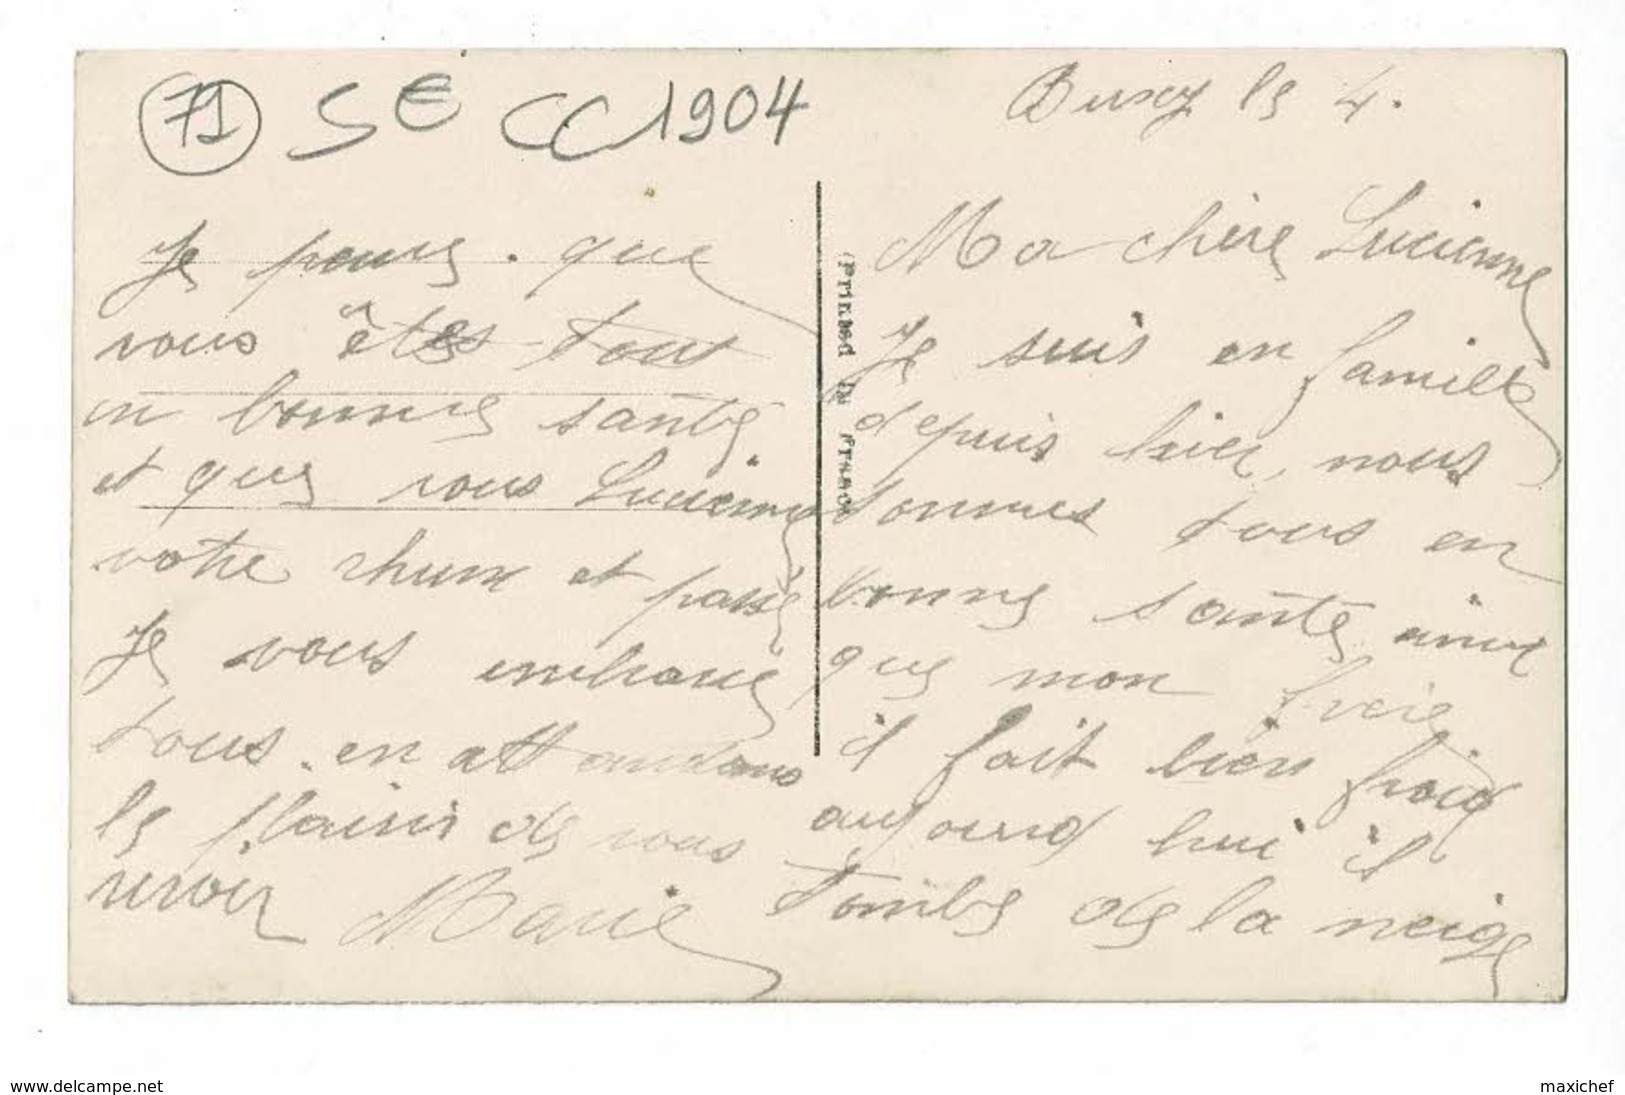 71 5€ CC 1904
Bussy le 4.
Ma chère Lucienne
Je suis en famille
depuis hier, nous
sommes tous en
bonne santé ainsi
que mon frère
il fait bien froid
aujourd hui il
tombe de la neige
(Printed in France)
Je pense. que
vous êtes tous
en bonne santé
et que vous Lucienne
votre rhume et passé
Je vous embrasse
tous. en attendans
le plaisir de vous
revoir Marie
www.delcampe.net
maxichef